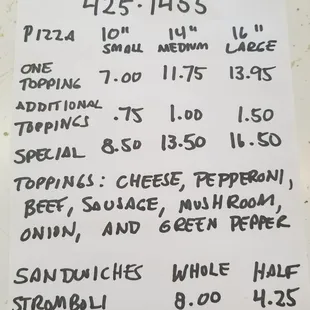 425-1455
PIZZA 10" 14" 16"
SMALL MEDIUM LARGE
ONE TOPPING 7.00 11.75 13.95
ADDITIONAL TOPPINGS .75 1.00 1.50
SPECIAL 8.50 13.50 16.50
TOPPINGS: CHEESE, PEPPERONI,
BEEF, SAUSAGE, MUSHROOM,
ONION, AND GREEN PEPPER
SANDWICHES WHOLE HALF
STROMBOLI 8.00 4.25